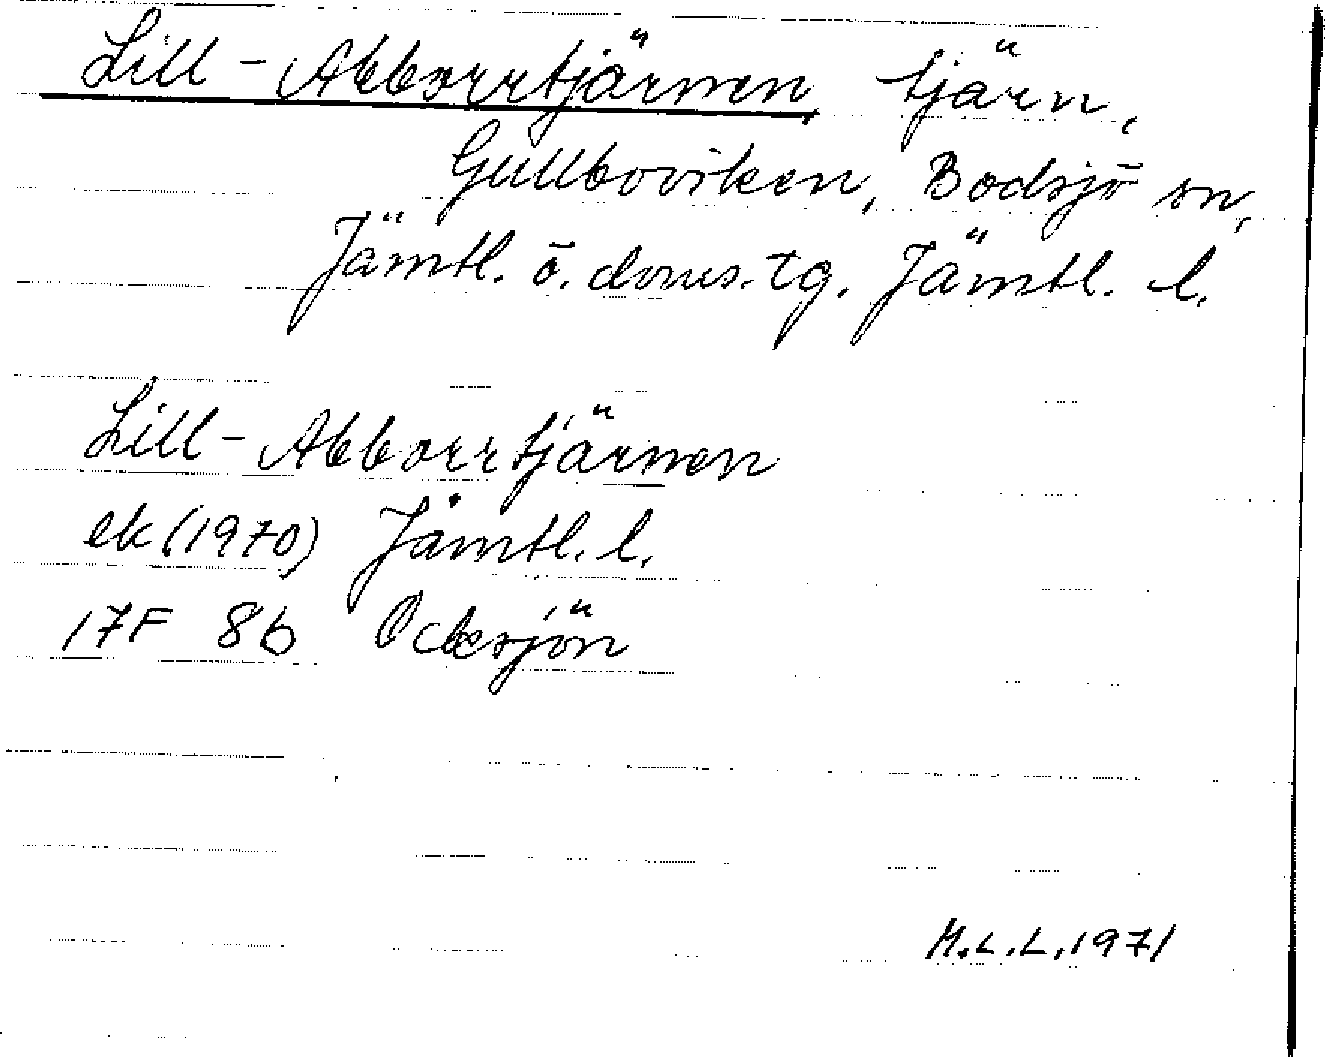 Lill-Abborrtjärnen, tjärn,
Gullboviken, Bodsjö sn,
Jämtl. ö. doms.tg. Jämtl. l.
Lill-Abborrtjärnen
ek (1970) Jämtl. l.
17F 8b Ocksjön
M.L.L. 1971